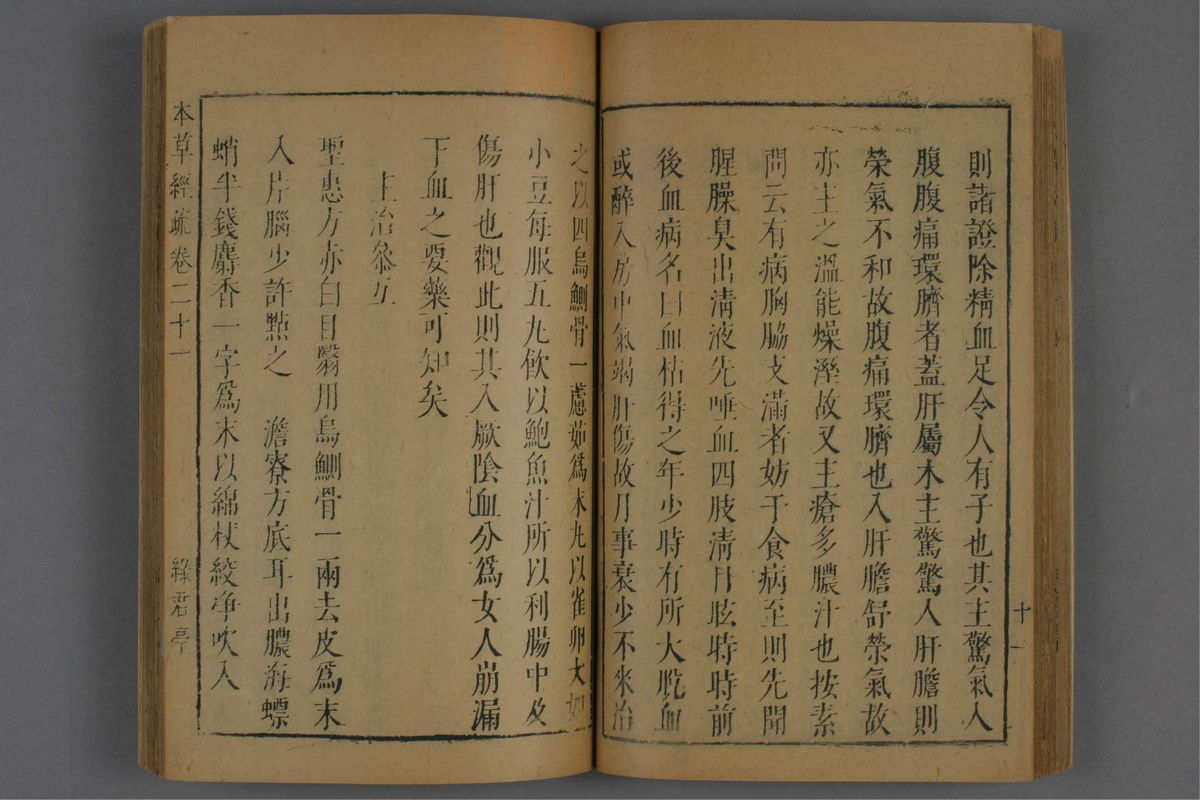 則諸證除精血足令人有子也其主驚氣入
腹腹痛環臍者蓋肝屬木主驚驚入肝膽則
榮氣不和故腹痛環臍也入肝膽舒榮氣故
亦主之溫能燥溼故又主瘡多膿汁也按素
問云有病胸脇支滿者妨于食病至則先聞
腥臊臭出淸液先唾血四肢淸目眩時時前
後血病名曰血枯得之年少時有所大脫血
或醉入房中氣竭肝傷故月事衰少不來治
十一
之以四烏鰂骨一藘茹爲末丸以雀卵大如
小豆每服五丸飮以鮑魚汁所以利腸中及
傷肝也觀此則其入厥陰血分爲女人崩漏
下血之要藥可知矣
主治參互
聖惠方赤白目翳用烏鰂骨一兩去皮爲末
入片腦少許點之 澹寮方底耳出膿海螵
蛸半錢麝香一字爲末以綿杖絞净吹入
本草經疏卷二十一 綠君亭